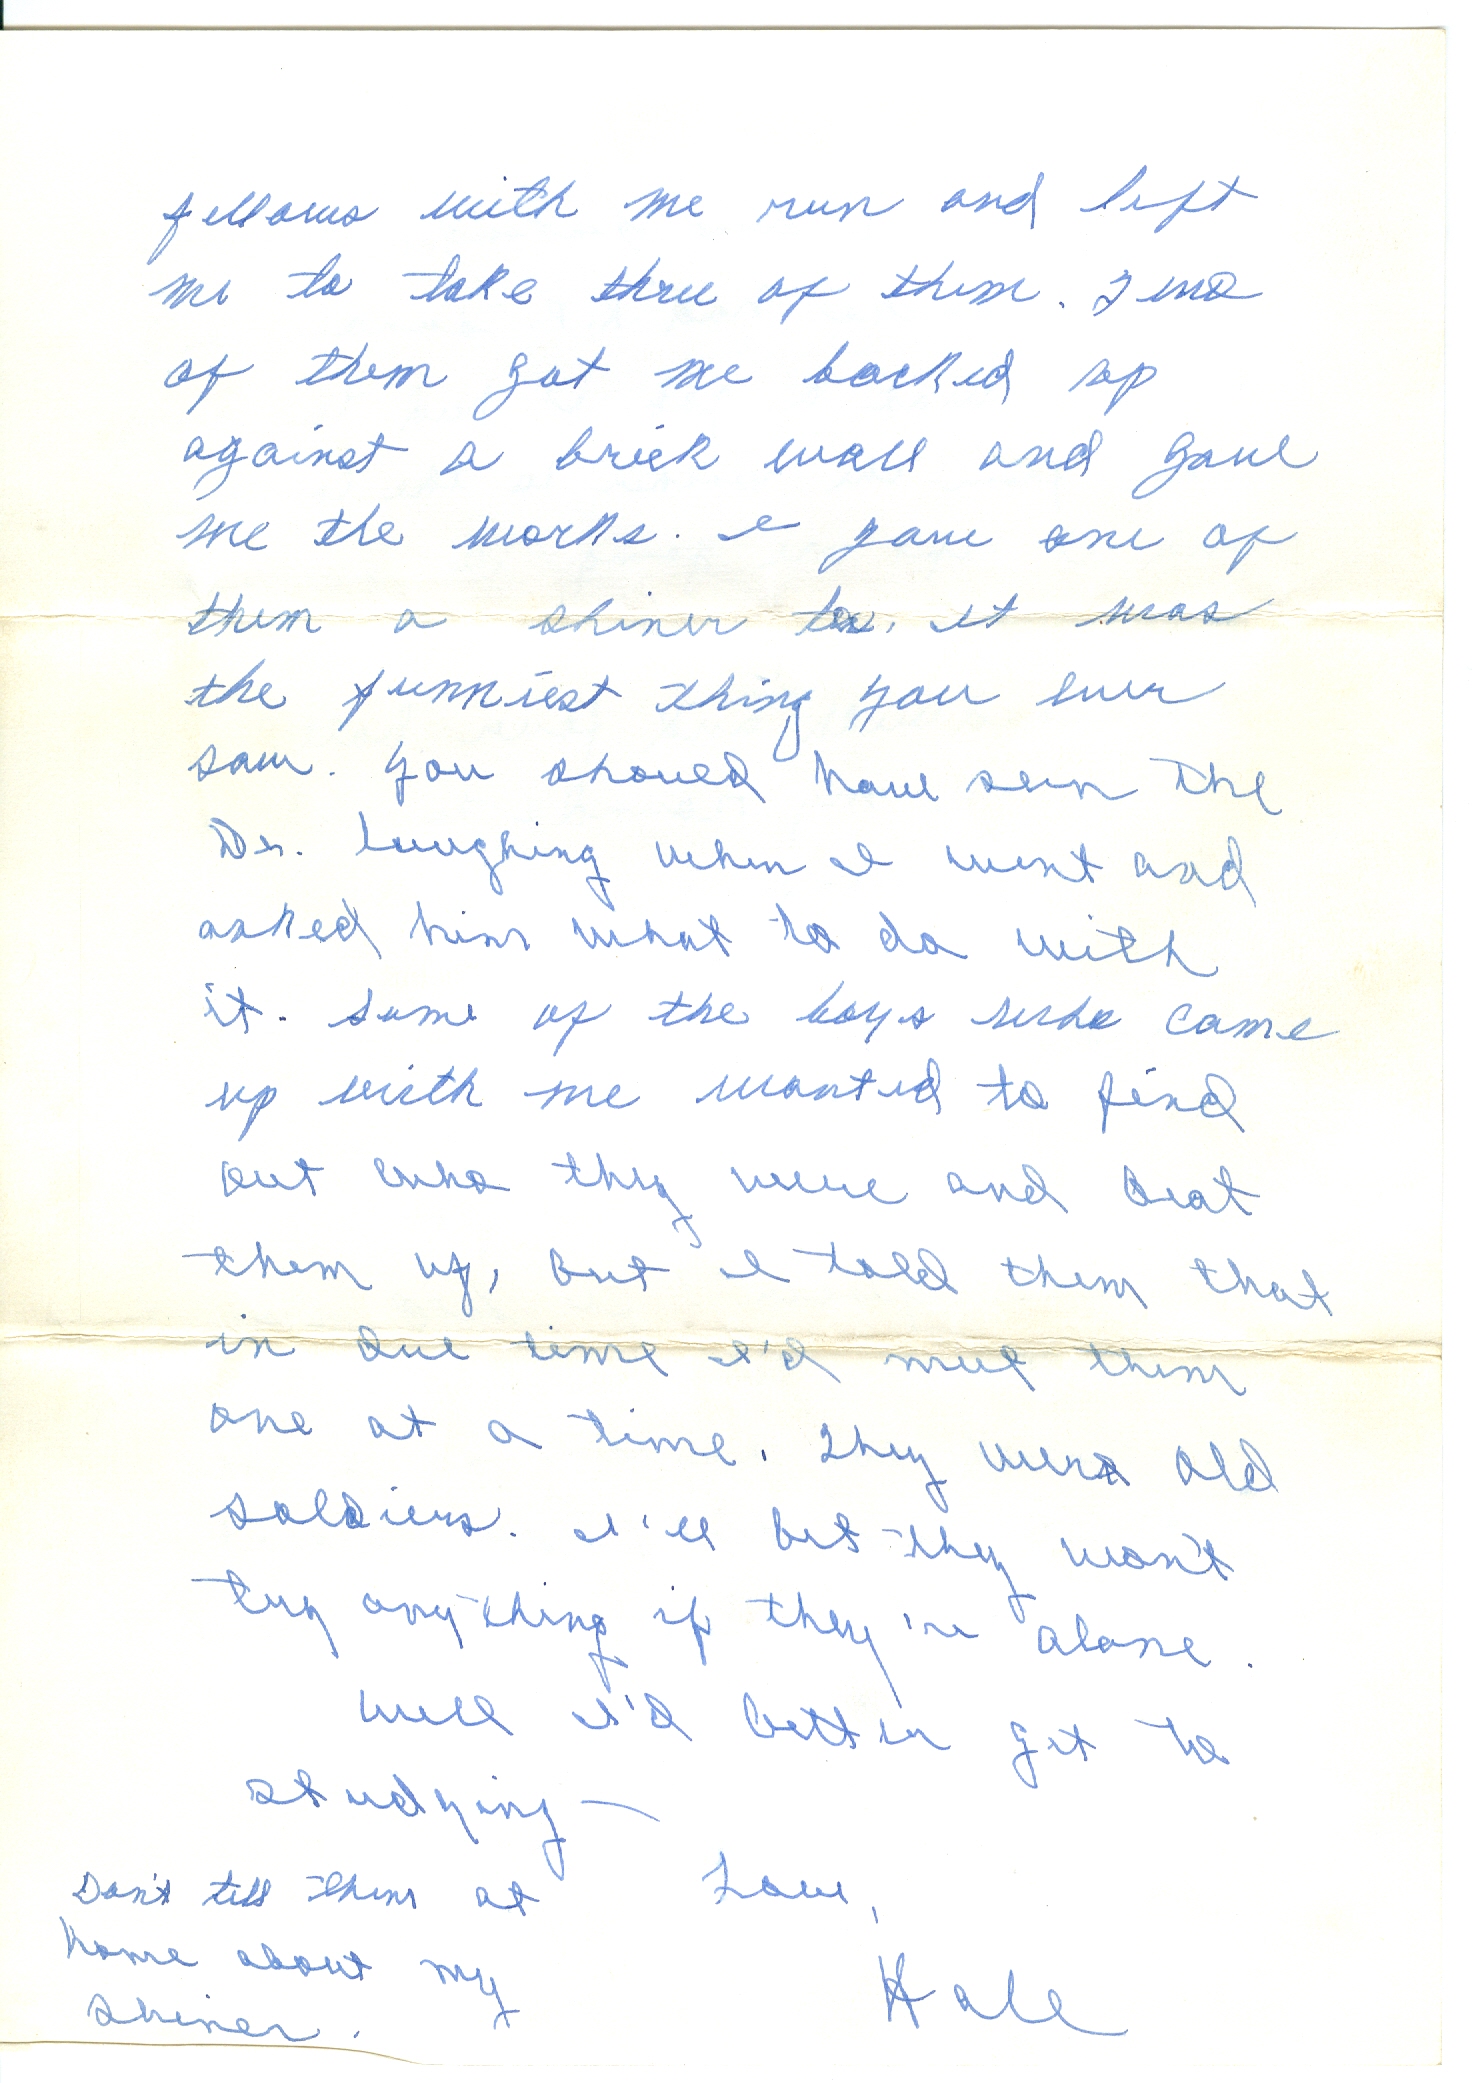 fellows with me run and left
me to take three of them. Two
of them got me backed up
against a brick wall and gave
me the works. I gave one of
them a shiner too. It was
the funniest thing you ever
saw. You should have seen the
Dr. laughing when I went and
asked him what to do with
it. Some of the boys who came
up with me wanted to find
out who they were and beat
them up, but I told them that
in due time I'd meet them
one at a time. They were old
soldiers. I'll bet they won't
try anything if they're alone.
Well I'd better get to
studying —
Love,
Hale
Don't tell them at
home about my
shiner.